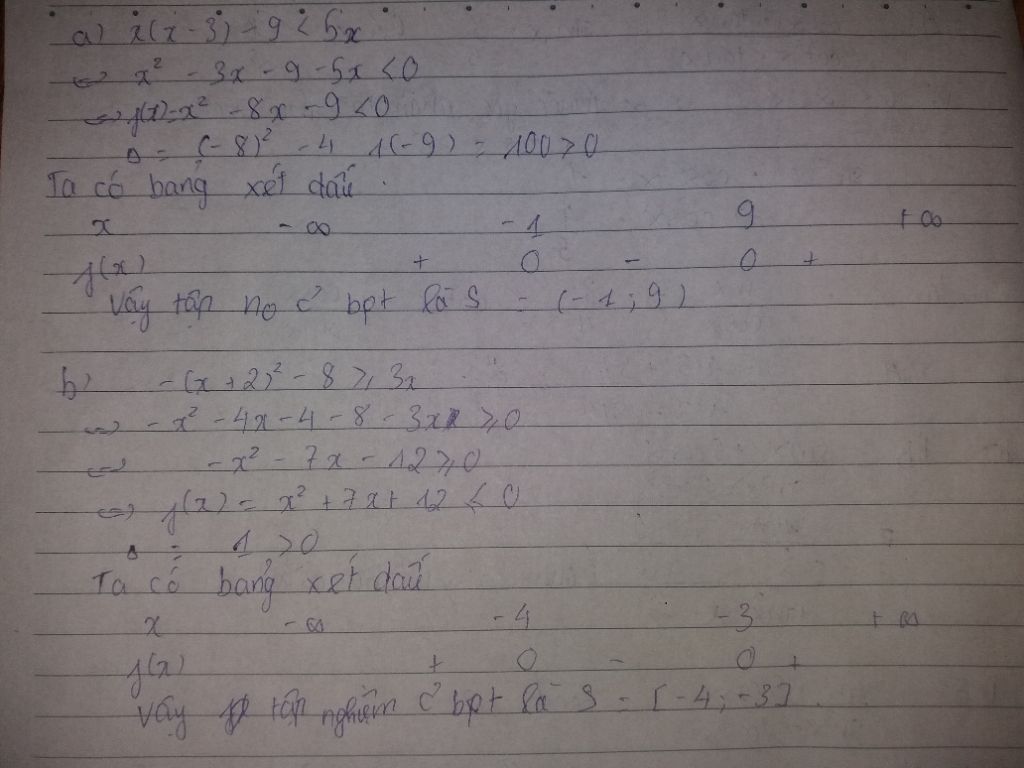 a) x(x - 3) - 9 < 5x
<=> x² - 3x - 9 - 5x < 0
<=> f(x) = x² - 8x - 9 < 0
Δ = (-8)² - 4 1(-9) = 100 > 0
Ta có bảng xét dấu .
x -∞ -1 9 +∞
f(x) + 0 - 0 +
Vậy tập no c̉ bpt là S = (-1 ; 9)
b) -(x + 2)² - 8 ⩾ 3x
<=> -x² - 4x - 4 - 8 - 3x ⩾ 0
<=> -x² - 7x - 12 ⩾ 0
<=> f(x) = x² + 7x + 12 ⩽ 0
Δ = 1 > 0
Ta có bảng xét dấu
x -∞ -4 -3 +∞
f(x) + 0 - 0 +
Vậy tập nghiệm c̉ bpt là S = [-4 ; -3] .